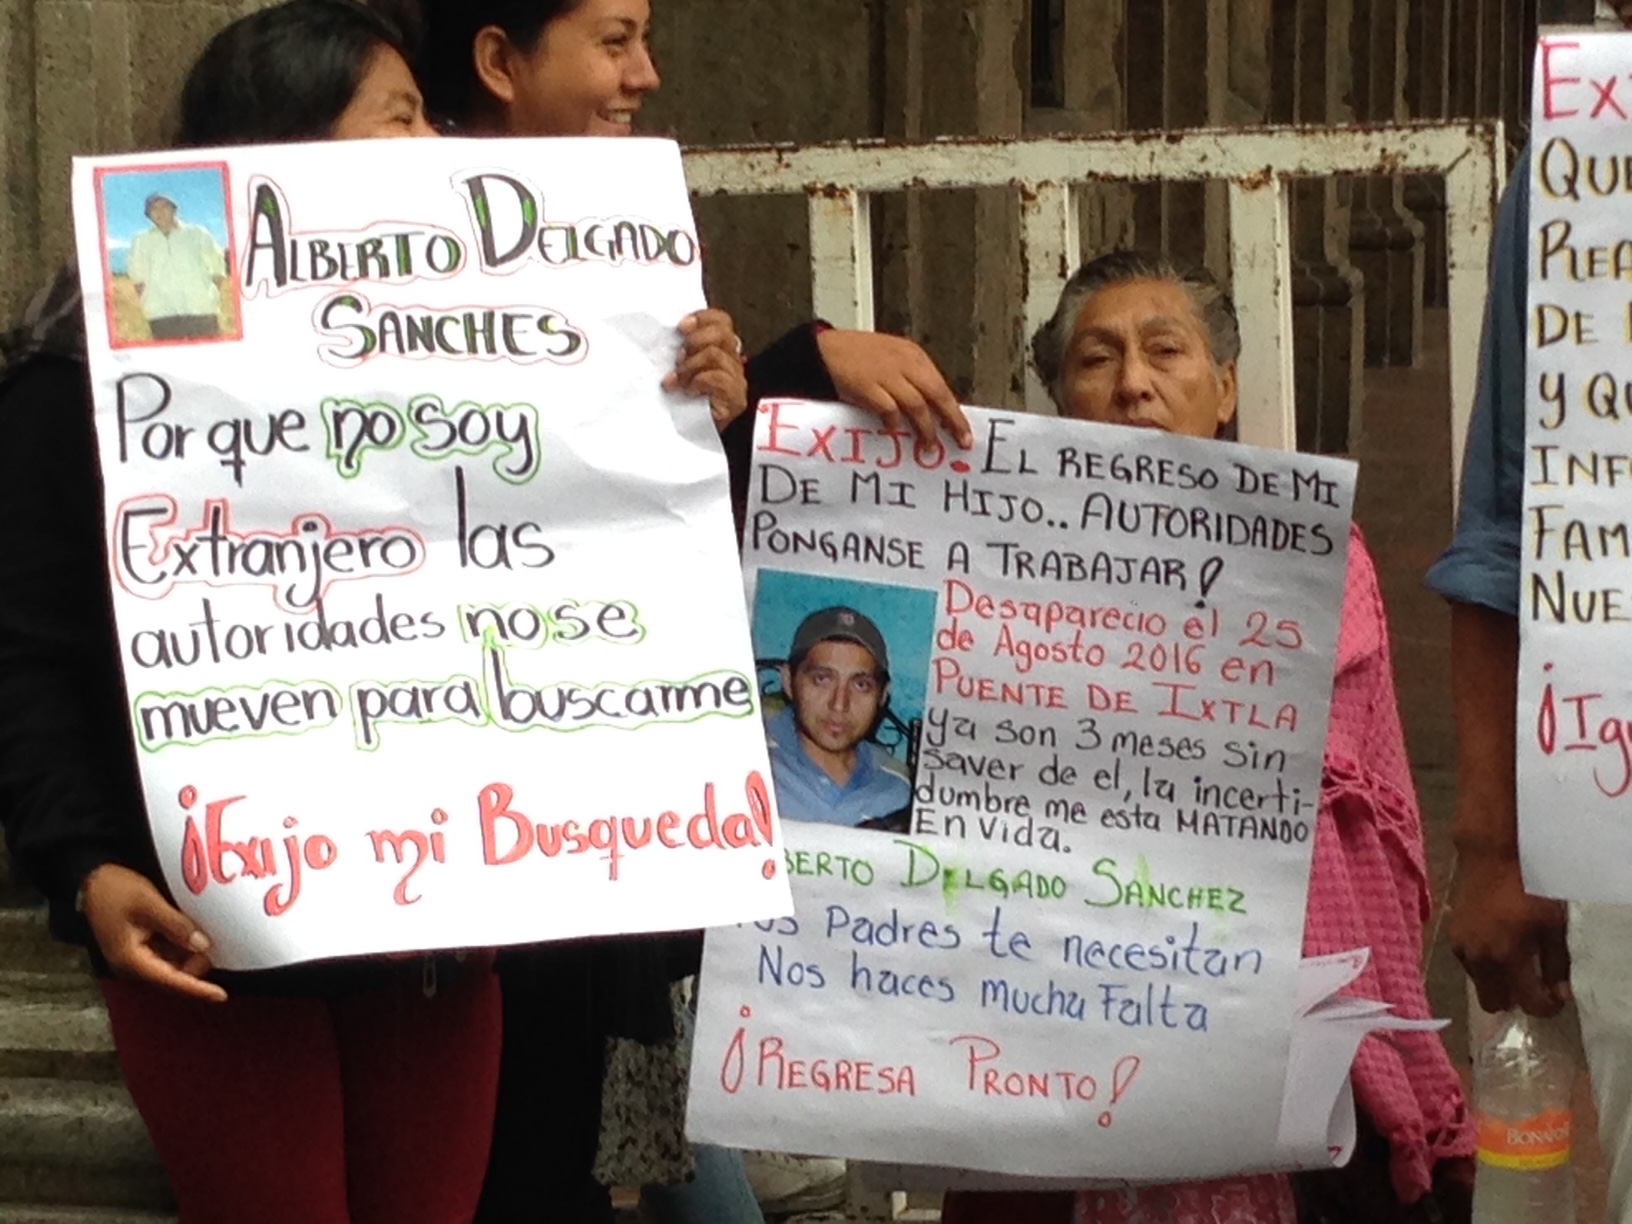 ALBERTO DELGADO
SANCHES
Por que no soy
Extranjero las
autoridades no se
mueven para buscarme
¡Exijo mi Busqueda!
EXIJO! EL REGRESO DE MI
DE MI HIJO.. AUTORIDADES
PONGANSE A TRABAJAR!
Desaparecio el 25
de Agosto 2016 en
PUENTE DE IXTLA
ya son 3 meses sin
saver de el, la incerti-
dumbre me esta MATANDO
En vida.
BERTO DELGADO SANCHEZ
Padres te necesitan
Nos haces mucha Falta
¡REGRESA PRONTO!
EX
QUE
REA
DE
Y QU
INF
FAM
NUE
¡Ig
BONA